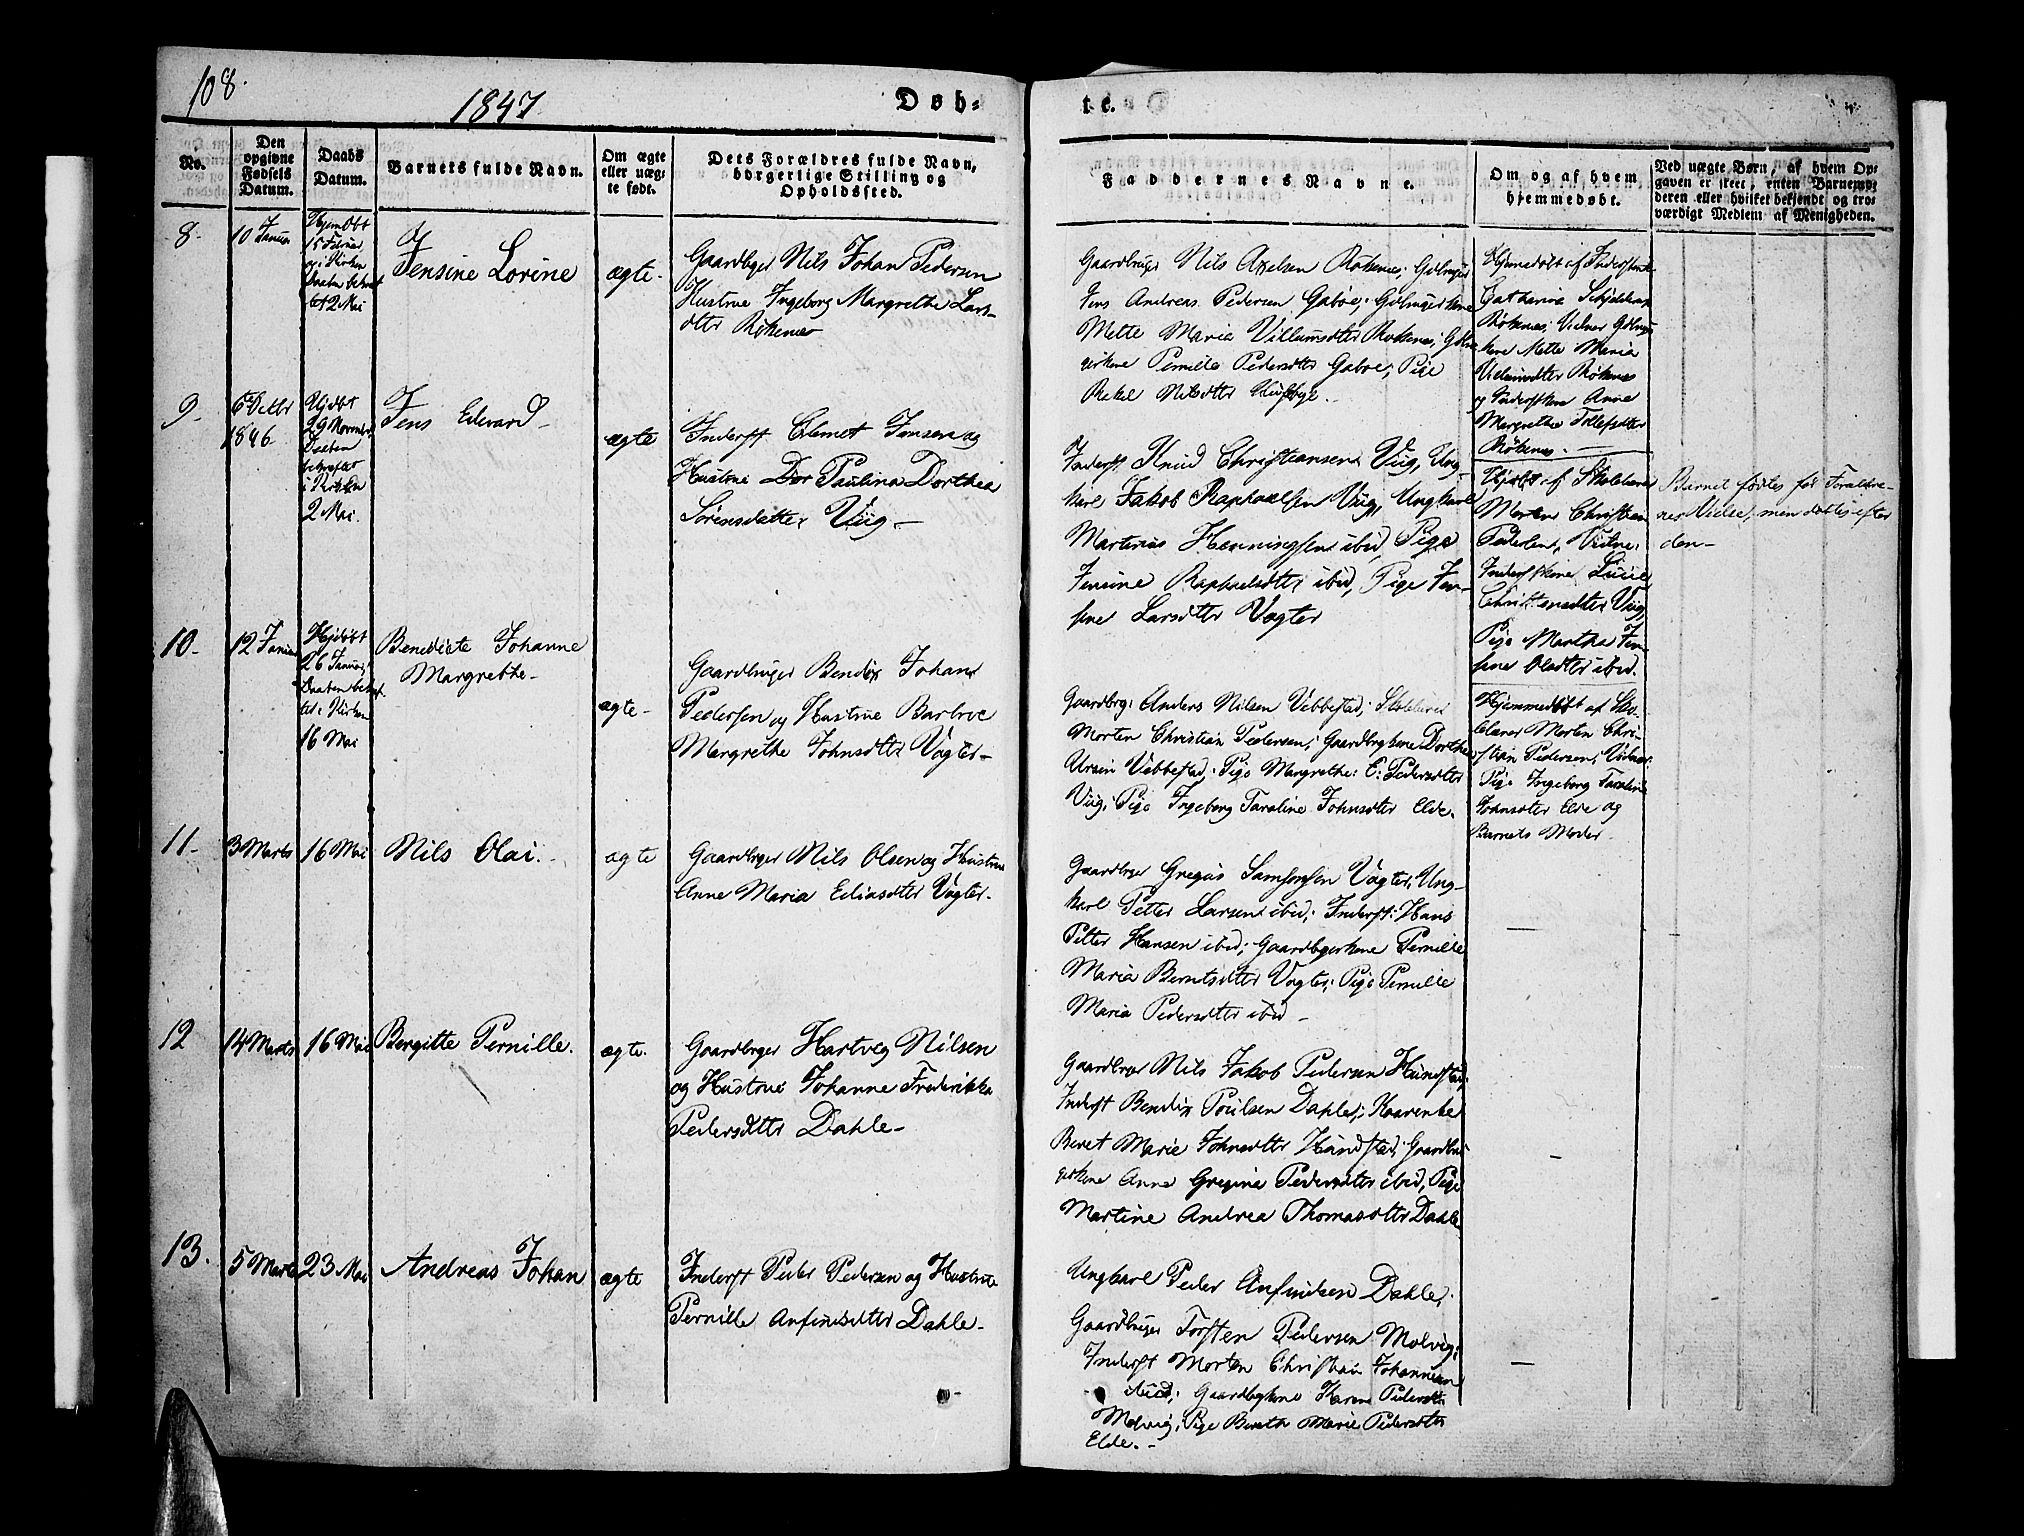 108.
1847.
Døb-
te.
No.
Den
opgivne
Fødsels
Datum.
Daabs
Datum.
Barnets fulde Navn.
Om ægte
eller uæg-
te født.
Dets Forældres fulde Navn,
borgerlige Stilling og
Opholdssted.
Faddernes Navne.
Om og af hvem
hjemmedøbt.
Ved uægte Børn, af hvem Op-
gaven er skeet, enten Barnemo-
deren eller hvilket bekjendt og tro-
værdigt Medlem af Menigheden.
8.
10 Januar
Hjemdbt
15 Februar
og i Kirken
Daaben bekræf-
tet 2 Mai
Jensine Lorine
ægte.
Gaardbger Nils Johan Pedersen
Hustrue Ingeborg Margrethe Lars-
dtter Røkenes
Gaardbruger Nils Axelsen Røkenes; Gdbruger
Jens Andreas Pedersen Gaboe; Gdbrugerkone
Mette Maria Villumsdtter Røkenes; Gdbru-
gerkone Pernille Pedersdtter Gaboe; Pige
Rekel Nilsdtter
Hjemmedøbt af
Catharina
Røkenes; Vidner Gdbruger-
kone Mette Maria
Villumsdtter Røkenes
og Inderstkone Anne
Margrethe Tollefsdtter
Røkenes.
9.
1846
Hjdbt
29 November
Daaben
bekræftet
i Kirken
2 Mai.
Jens Edvard
ægte
Inderst Clemet Jensen og
Hustrue Dor Paulina Dorthea
Sørensdatter Viig.
Inderst Knud Christiansen Viig, Ung-
karl Jakob Raphaelsen Viig, Ungkarl
Martinus Henningsen ibid, Pige
Jensine Raphaelsdtter ibid, Pige Jen-
sine Larsdtter Vagter
Hjdbt af Skolelærer
Morten Christian
Pedersen, Vidne:
Inderstkone Lucie
Christensdtter Viig,
Pige Martha Jen-
sine Olsdtter ibid.
Barnet fødtes før Forældre-
nes Vielse, men døbtes efter
den
10.
12 Januar
Hjdøbt
26 Januar
Daaben bekræf-
tet i Kirken
16 Mai
Benedicte Johanne
Margrethe
ægte
Gaardbruger Bendix Johan
Pedersen og Hustrue Barbroe
Margrethe Johnsdtter Vagter
Gaardbrg: Anders Nilsen Vebbestad; Skolelærer
Morten Christian Pedersen; Gaardbrgkone Dorthea
Ursin Vebbestad; Pige Margrethe: E: Pedersdtter
Viig; Pige Ingeborg Taraline Johnsdtter Elde.
Hjemmedøbt af Sko-
lelærer Morten Chri-
stian Pedersen; Vidner:
Pige Ingeborg Taraline
Johnsdtter Elde og
Barnets Moder.
11.
3 Marts
16 Mai
Nils Olai.
ægte
Gaardbrger Nils Olsen og Hustrue
Anne Maria Eliasdtter Vagter.
Gaardbrger Gregus Samsonsen Vagter, Ung-
karl Petter Larsen ibid; Inderst: Hans
Petter Hansen ibid; Gaardbgerkone Pernille
Maria Berntsdtter Vagter; Pige Pernille
Maria Pedersdtter ibid
12
14 Marts
16 Mai
Bergitte Pernille.
ægte.
Gaardbrger Hartvig Nilsen
og Hustrue Johanne Frederikka
Pedersdtter Dahle
Gaardbrger Nils Jakob Pedersen Hundstad;
Inderst Bendix Poulsen Dahle; Kaarenke
Beret Marie Johnsdtter Hundstad; Gaardbru-
gerkone Anne Gregine Pedersdtter ibid, Pige
Martine Andrea Thomasdtter Dahle
13.
5 Marts
23 Mai
Andreas Johan
ægte
Inderst Peder Pedersen og Hustrue
Pernille Anfinsdtter Dahle
Ungkarl Peder Anfindsen Dahle,
Gaardbruger Torsten Pedersen Molvig;
Inderst Morten Christian Johannesen
ibid; Gaardbrgkone Karen Pedersdtter
Molvig; Pige Bereth Marie Pedersdtter
Elde.